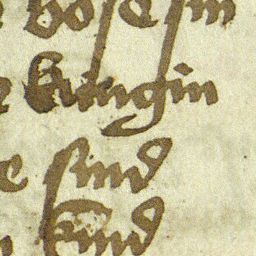 bose sin
kungin
e sind
kind